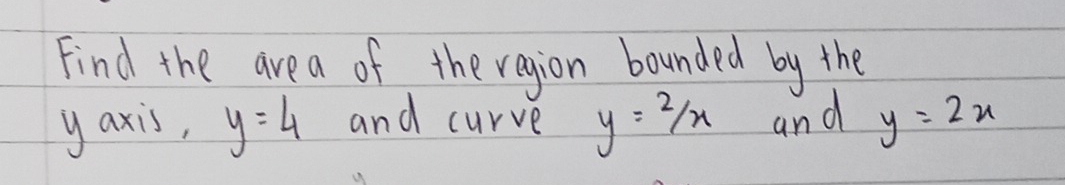 Find the area of the region bounded by the
y axis, y=4 and curve y = 2/x and y = 2x